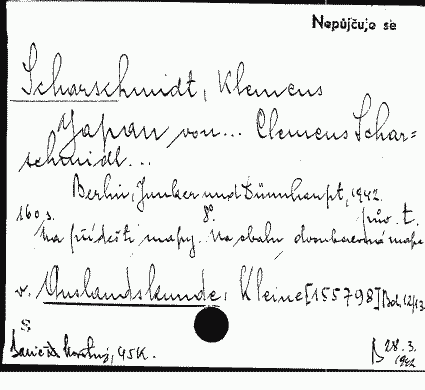 Nepůjčuje se
Scharschmidt, Klemens
Japan von... Clemens Schar=
schmidt...
Berlin, Junker und Dünnhaupt, 1942.
160 s. 8°. pův. t.
Na přídešti mapy. Na obalu dvoubarevná mapa
v. Auslandskunde, Kleine [155798] Boh. 12/13.
S
45K. 28. 3.
1942